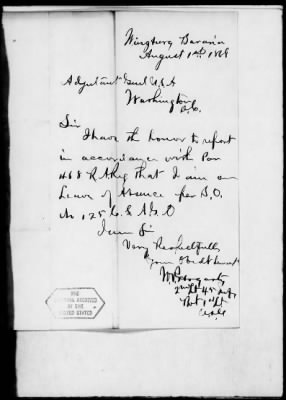 Würzburg Bavaria
August 1st 1868
Adjutant Genl U.S.A
Washington
D.C.
Sir
I have the honor to report
in accordance with Par
468 R Arty that I am on
Leave of Absence per S.O.
No 125 A.G.O
I am Sir
Very Respectfully
Your Obdt Servt
2nd Lt 45 Infy
THE
NATIONAL ARCHIVES
OF THE
UNITED STATES